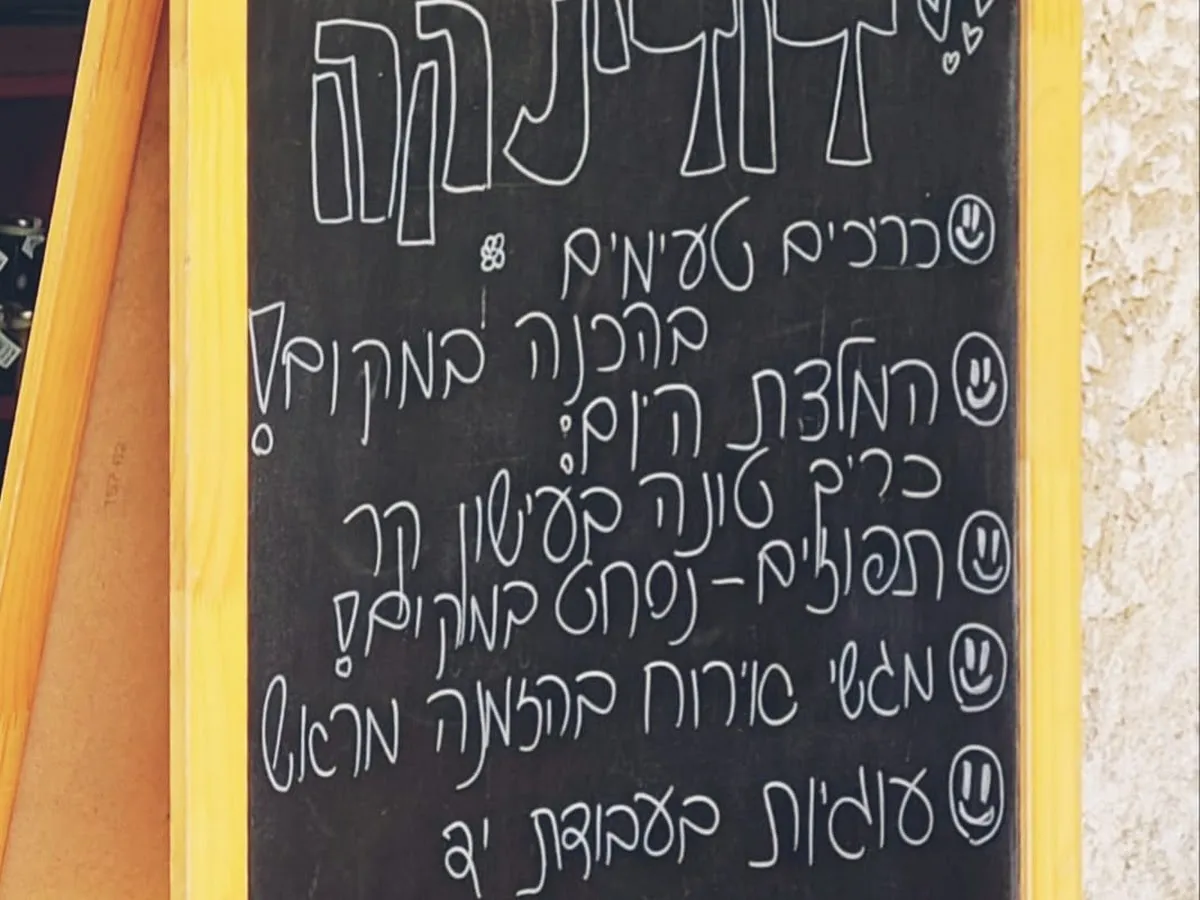 דודינקה
כריכים טעימים
בהכנה במקום!
המלצת היום:
כריך טונה בעישון קר
תפוזים - נסחט במקום!
מגשי אירוח בהזמנה מראש
עוגיות בעבודת יד